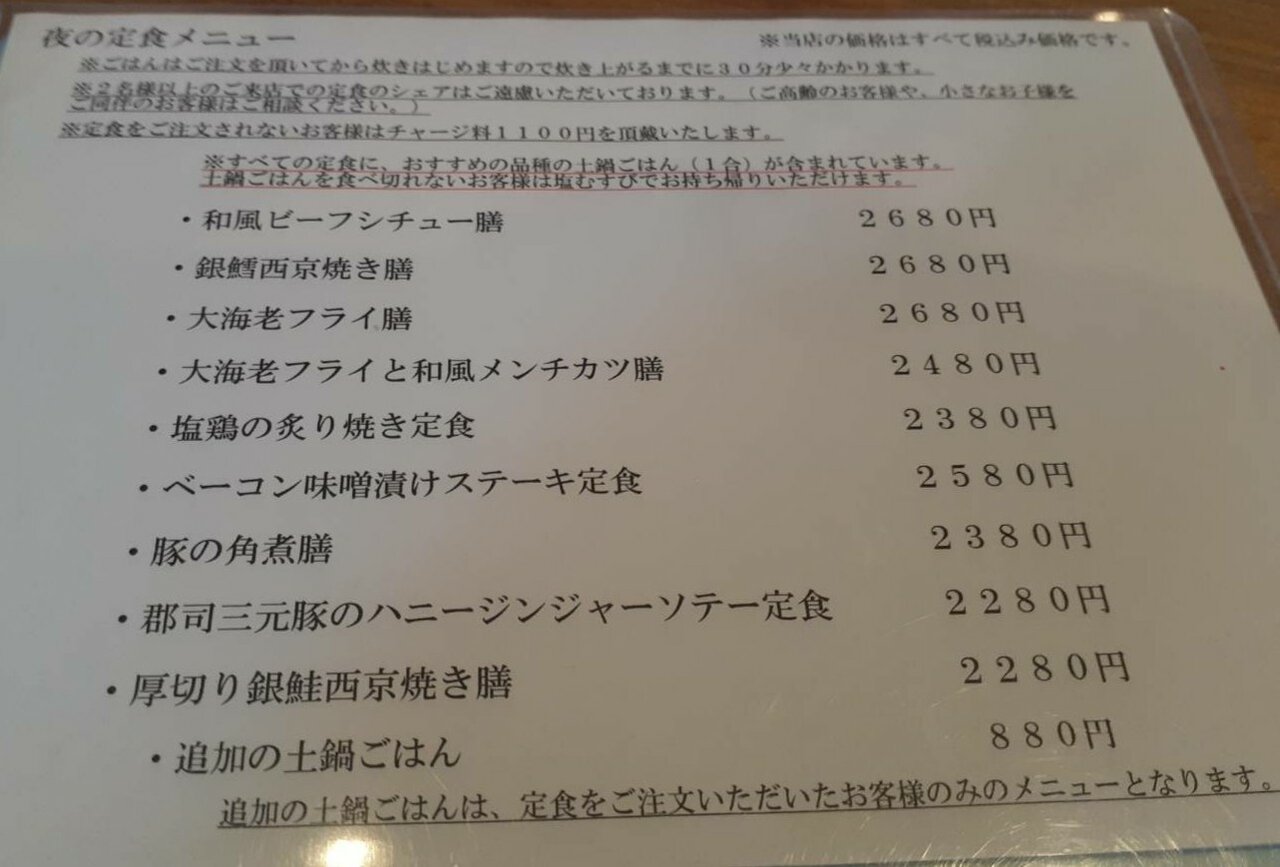 夜の定食メニュー
※当店の価格はすべて税込み価格です。
※ごはんはご注文を頂いてから炊きはじめますので炊き上がるまでに30分少々かかります。
※2名様以上のご来店での定食のシェアはご遠慮いただいております。（ご高齢のお客様や、小さなお子様を
ご同伴のお客様はご相談ください。）
※定食をご注文されないお客様はチャージ料1100円を頂戴いたします。
※すべての定食に、おすすめの品種の土鍋ごはん（1合）が含まれています。
土鍋ごはんを食べ切れないお客様は塩むすびでお持ち帰りいただけます。
・和風ビーフシチュー膳 2680円
・銀鱈西京焼き膳 2680円
・大海老フライ膳 2680円
・大海老フライと和風メンチカツ膳 2480円
・塩鶏の炙り焼き定食 2380円
・ベーコン味噌漬けステーキ定食 2580円
・豚の角煮膳 2380円
・郡司三元豚のハニージンジャーソテー定食 2280円
・厚切り銀鮭西京焼き膳 2280円
・追加の土鍋ごはん 880円
追加の土鍋ごはんは、定食をご注文いただいたお客様のみのメニューとなります。